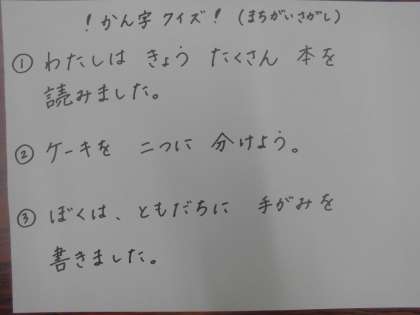 ！かん字クイズ！（まちがいさがし）
① わたしは きょう たくさん 本を
読みました。
② ケーキを 二つに 分けよう。
③ ぼくは、ともだちに 手がみを
書きました。